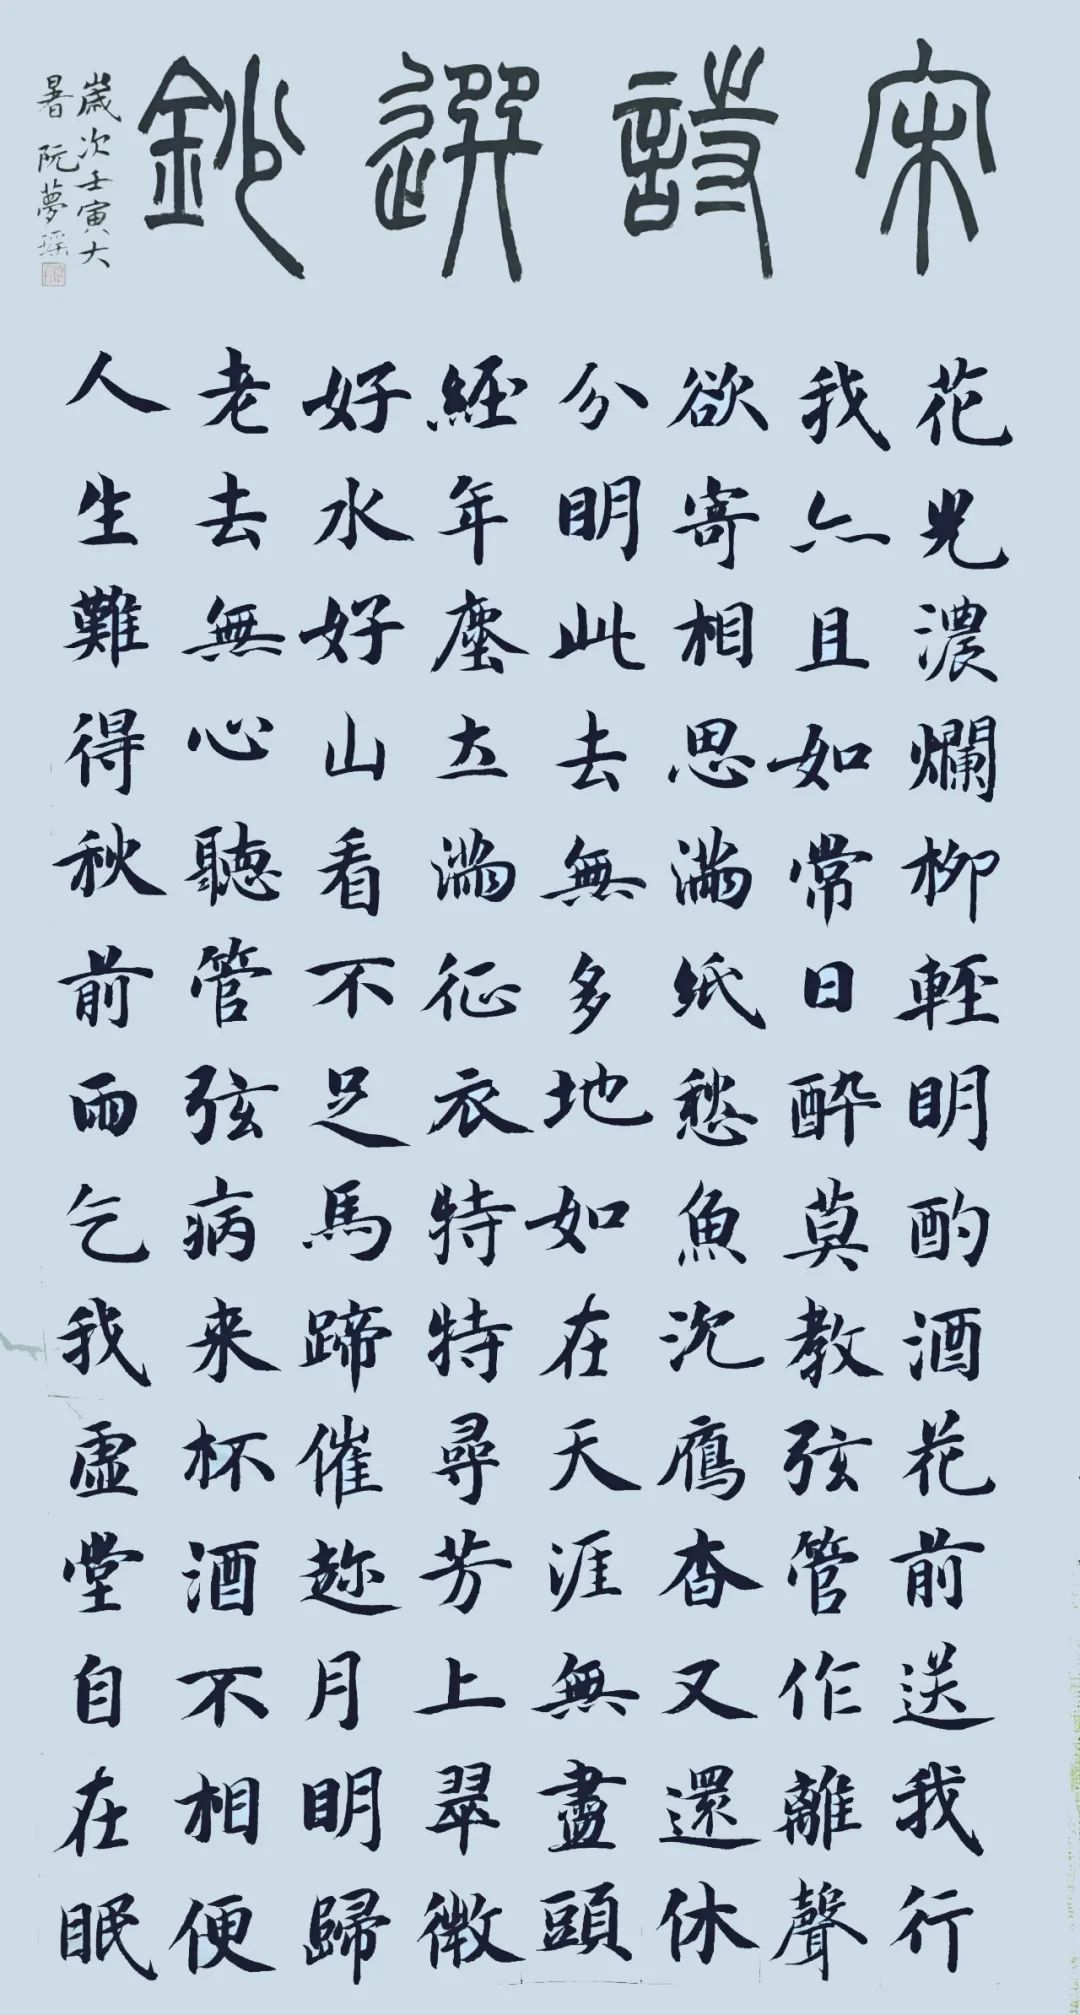 宋詩選鈔
花光濃爛柳輕明酌酒花前送我行
我亦且如常日醉莫教弦管作離聲
欲寄相思滿紙愁魚沉鴈杳又還休
分明此去無多地如在天涯無盡頭
經年塵土滿征衣特特尋芳上翠微
好水好山看不足馬蹄催趂月明歸
老去無心聽管弦病来杯酒不相便
人生難得秋前雨乞我虛堂自在眠
歲次壬寅大
暑 阮夢瑶